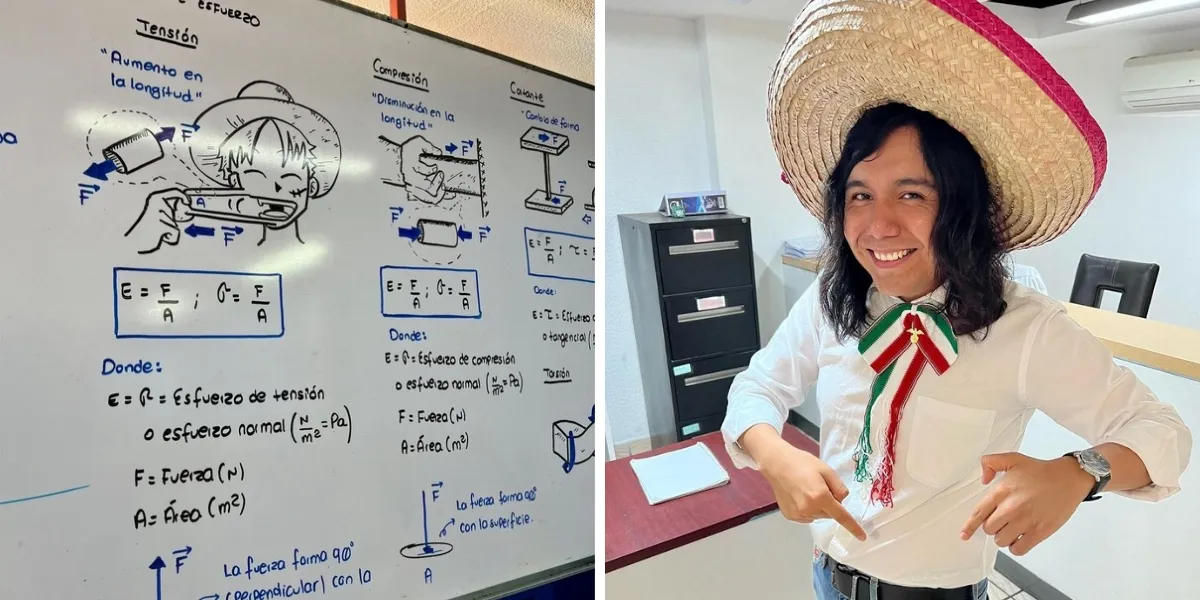 ESFUERZO
Tensión
"Aumento en
la longitud"
F
F
A
F
E = F/A ; σ = F/A
Donde:
E = σ = Esfuerzo de tensión
o esfuerzo normal (N/m² = Pa)
F = Fuerza (N)
A = Área (m²)
F
La fuerza forma 90°
(perpendicular) con la
Compresión
"Disminución en la
longitud"
F
F
F
E = F/A ; σ = F/A
Donde:
E = σ = Esfuerzo de compresión
o esfuerzo normal (N/m² = Pa)
F = Fueza (N)
A = Área (m²)
F
La fuerza forma 90°
con la superficie.
A
Cortante
Cambio de forma
F
F
E = F/A ; τ =
Donde:
E = τ = Esfuerzo
o tangencial (
Torsión